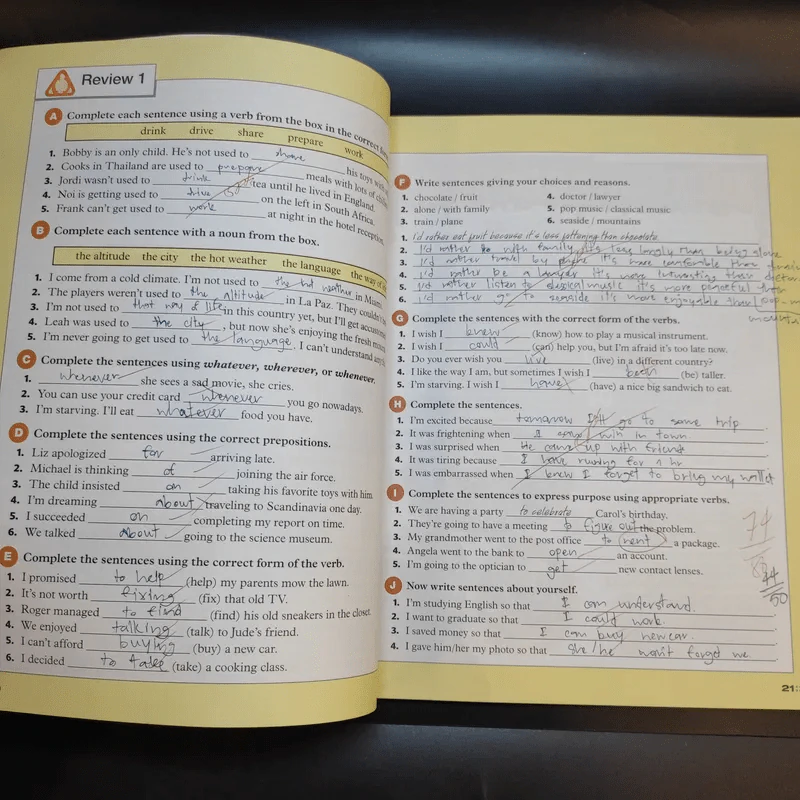 Review 1
A Complete each sentence using a verb from the box in the correct form.
drink drive share prepare work
1. Bobby is an only child. He's not used to share his toys with
2. Cooks in Thailand are used to prepare meals with lots of
3. Jordi wasn't used to drink tea until he lived in England.
4. Noi is getting used to drive on the left in South Africa.
5. Frank can't get used to work at night in the hotel reception.
B Complete each sentence with a noun from the box.
the altitude the city the hot weather the language the way of
1. I come from a cold climate. I'm not used to the hot weather in Miami.
2. The players weren't used to the altitude in La Paz. They couldn't
3. I'm not used to that way of life in this country yet, but I'll get
4. Leah was used to the city, but now she's enjoying the fresh
5. I'm never going to get used to the language. I can't understand
C Complete the sentences using whatever, wherever, or whenever.
1. whenever she sees a sad movie, she cries.
2. You can use your credit card whenever you go nowadays.
3. I'm starving. I'll eat whatever food you have.
D Complete the sentences using the correct prepositions.
1. Liz apologized for arriving late.
2. Michael is thinking of joining the air force.
3. The child insisted on taking his favorite toys with him.
4. I'm dreaming about traveling to Scandinavia one day.
5. I succeeded on completing my report on time.
6. We talked about going to the science museum.
E Complete the sentences using the correct form of the verb.
1. I promised to help (help) my parents mow the lawn.
2. It's not worth fixing (fix) that old TV.
3. Roger managed to find (find) his old sneakers in the closet.
4. We enjoyed talking (talk) to Jude's friend.
5. I can't afford buying (buy) a new car.
6. I decided to take (take) a cooking class.
F Write sentences giving your choices and reasons.
1. chocolate / fruit 4. doctor / lawyer
2. alone / with family 5. pop music / classical music
3. train / plane 6. seaside / mountains
1. I'd rather eat fruit because it's less fattening than chocolate
2. I'd rather with family it's less than being alone
3. I'd rather travel by plane it's more than
4. I'd rather be a lawyer it's more than
5. I'd rather listen to classical music it's more peaceful than
6. I'd rather go to seaside it's more enjoyable than
G Complete the sentences with the correct form of the verbs.
1. I wish I knew (know) how to play a musical instrument.
2. I wish I could (can) help you, but I'm afraid it's too late now.
3. Do you ever wish you live (live) in a different country?
4. I like the way I am, but sometimes I wish I been (be) taller.
5. I'm starving. I wish I have (have) a nice big sandwich to eat.
H Complete the sentences.
1. I'm excited because tomorrow I'll go to some trip.
2. It was frightening when I in town.
3. I was surprised when He came up with friends
4. It was tiring because I running for 1 hr
5. I was embarrassed when I knew I forget to bring my wallet
I Complete the sentences to express purpose using appropriate verbs.
1. We are having a party to celebrate Carol's birthday.
2. They're going to have a meeting to figure out the problem.
3. My grandmother went to the post office to a package.
4. Angela went to the bank to open an account.
5. I'm going to the optician to get new contact lenses.
74
44
50
J Now write sentences about yourself.
1. I'm studying English so that I can understand.
2. I want to graduate so that I could work.
3. I saved money so that I can buy new car.
4. I gave him/her my photo so that she/he won't forget me.